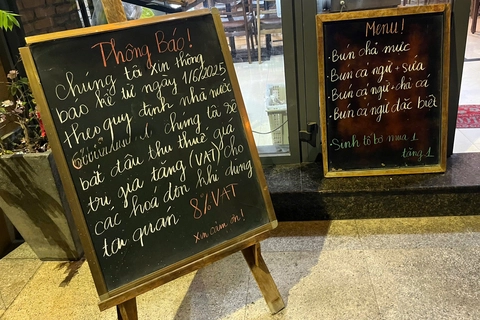 Thông Báo!
Chúng tôi xin thông
báo kể từ ngày 1/6/2025
theo quy định nhà nước
chúng tôi sẽ
bắt đầu thu thuế giá
trị gia tăng (VAT) cho
các hoá đơn khi dùng
tại quán 8% VAT
Xin cảm ơn!
Menu!
• Bún chả mực
• Bún cá ngừ + sứa
• Bún cá ngừ + chả cá
• Bún cá ngừ đặc biệt
• Sinh tố bơ mua 1
tặng 1